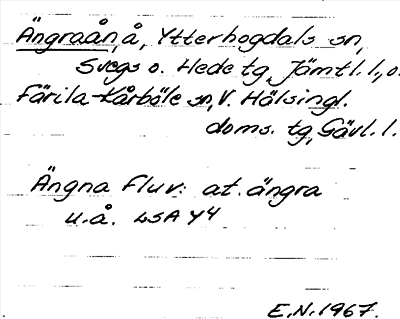 Ängraån, å, Ytterhogdals sn,
Svegs o. Hede tg, Jämtl. l., o.
Färila-Kårböle sn, V. Hälsingl.
doms. tg, Gävl. l.
Ängna Fluv: at. ängra
u. å. LSA Y4
E.N. 1967.